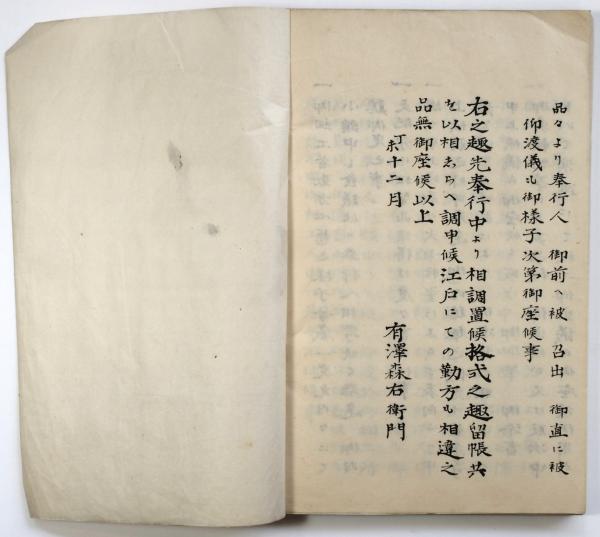 品々より奉行人 御前へ被 召出 御直に被
仰渡儀も御様子次第御座候事
右之趣先奉行中より相調置候格式之趣留帳共
を以相志らへ調申候江戸にての勤方も相違之
品無御座候以上
丁未十二月
有澤森右衛門